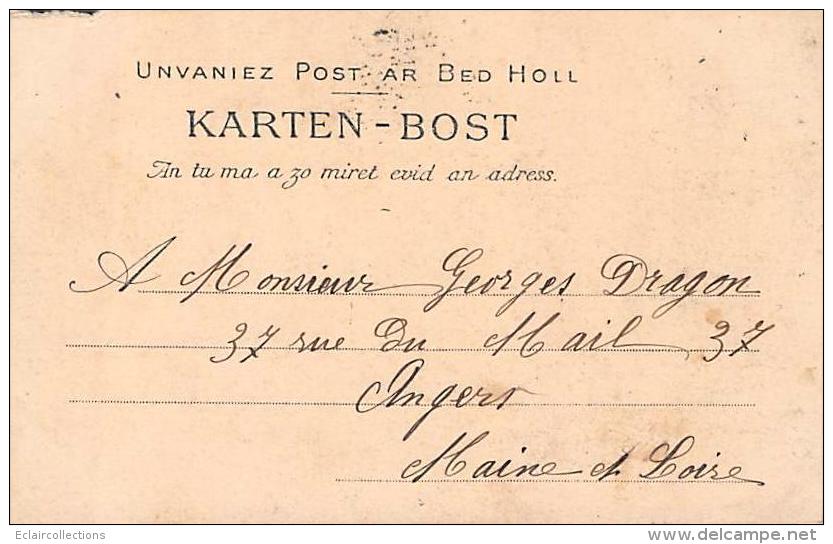 UNVANIEZ POST AR BED HOLL
KARTEN-BOST
An tu ma a zo miret evid an adress.
A Monsieur Georges Dragon
37 rue Du Mail 37
Angers
Maine et Loire
Eclaircollections
www.delcampe.net